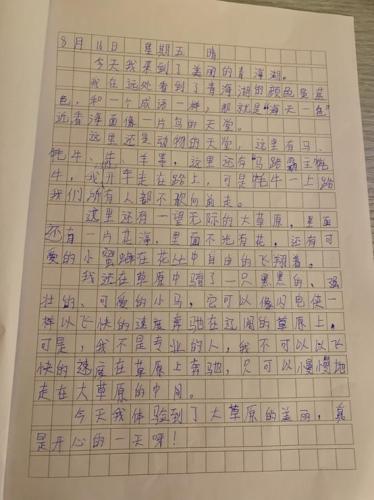 8月16日 星期五 晴
今天我来到了美丽的青海湖。
我在远处看到了青海湖的颜色是蓝
色,和一个成语一样,那就是“海天一色”
近看海面像一片鸟的天堂。
这里还是动物的天堂,这里有马、
牦牛、羊、羊羔,这里还有“马路霸王牦
牛,我开车走在路上,可是牦牛一上路
我们所有人都不敢向前走。
这里还有一望无际的大草原,里面
还有一片花海,里面不光有花,还有可
爱的小蜜蜂在花丛中自由的飞翔着。
我还在草原中骑了一只黑黑的、强
壮的、可爱的小马,它可以像闪电侠一
样以飞快的速度奔驰在辽阔的草原上。
可是,我不是专业的人,我不可以以飞
快的速度在草原上奔驰,只可以慢慢地
走在大草原的中间。
今天我体验到了大草原的美丽,真
是开心的一天呀!